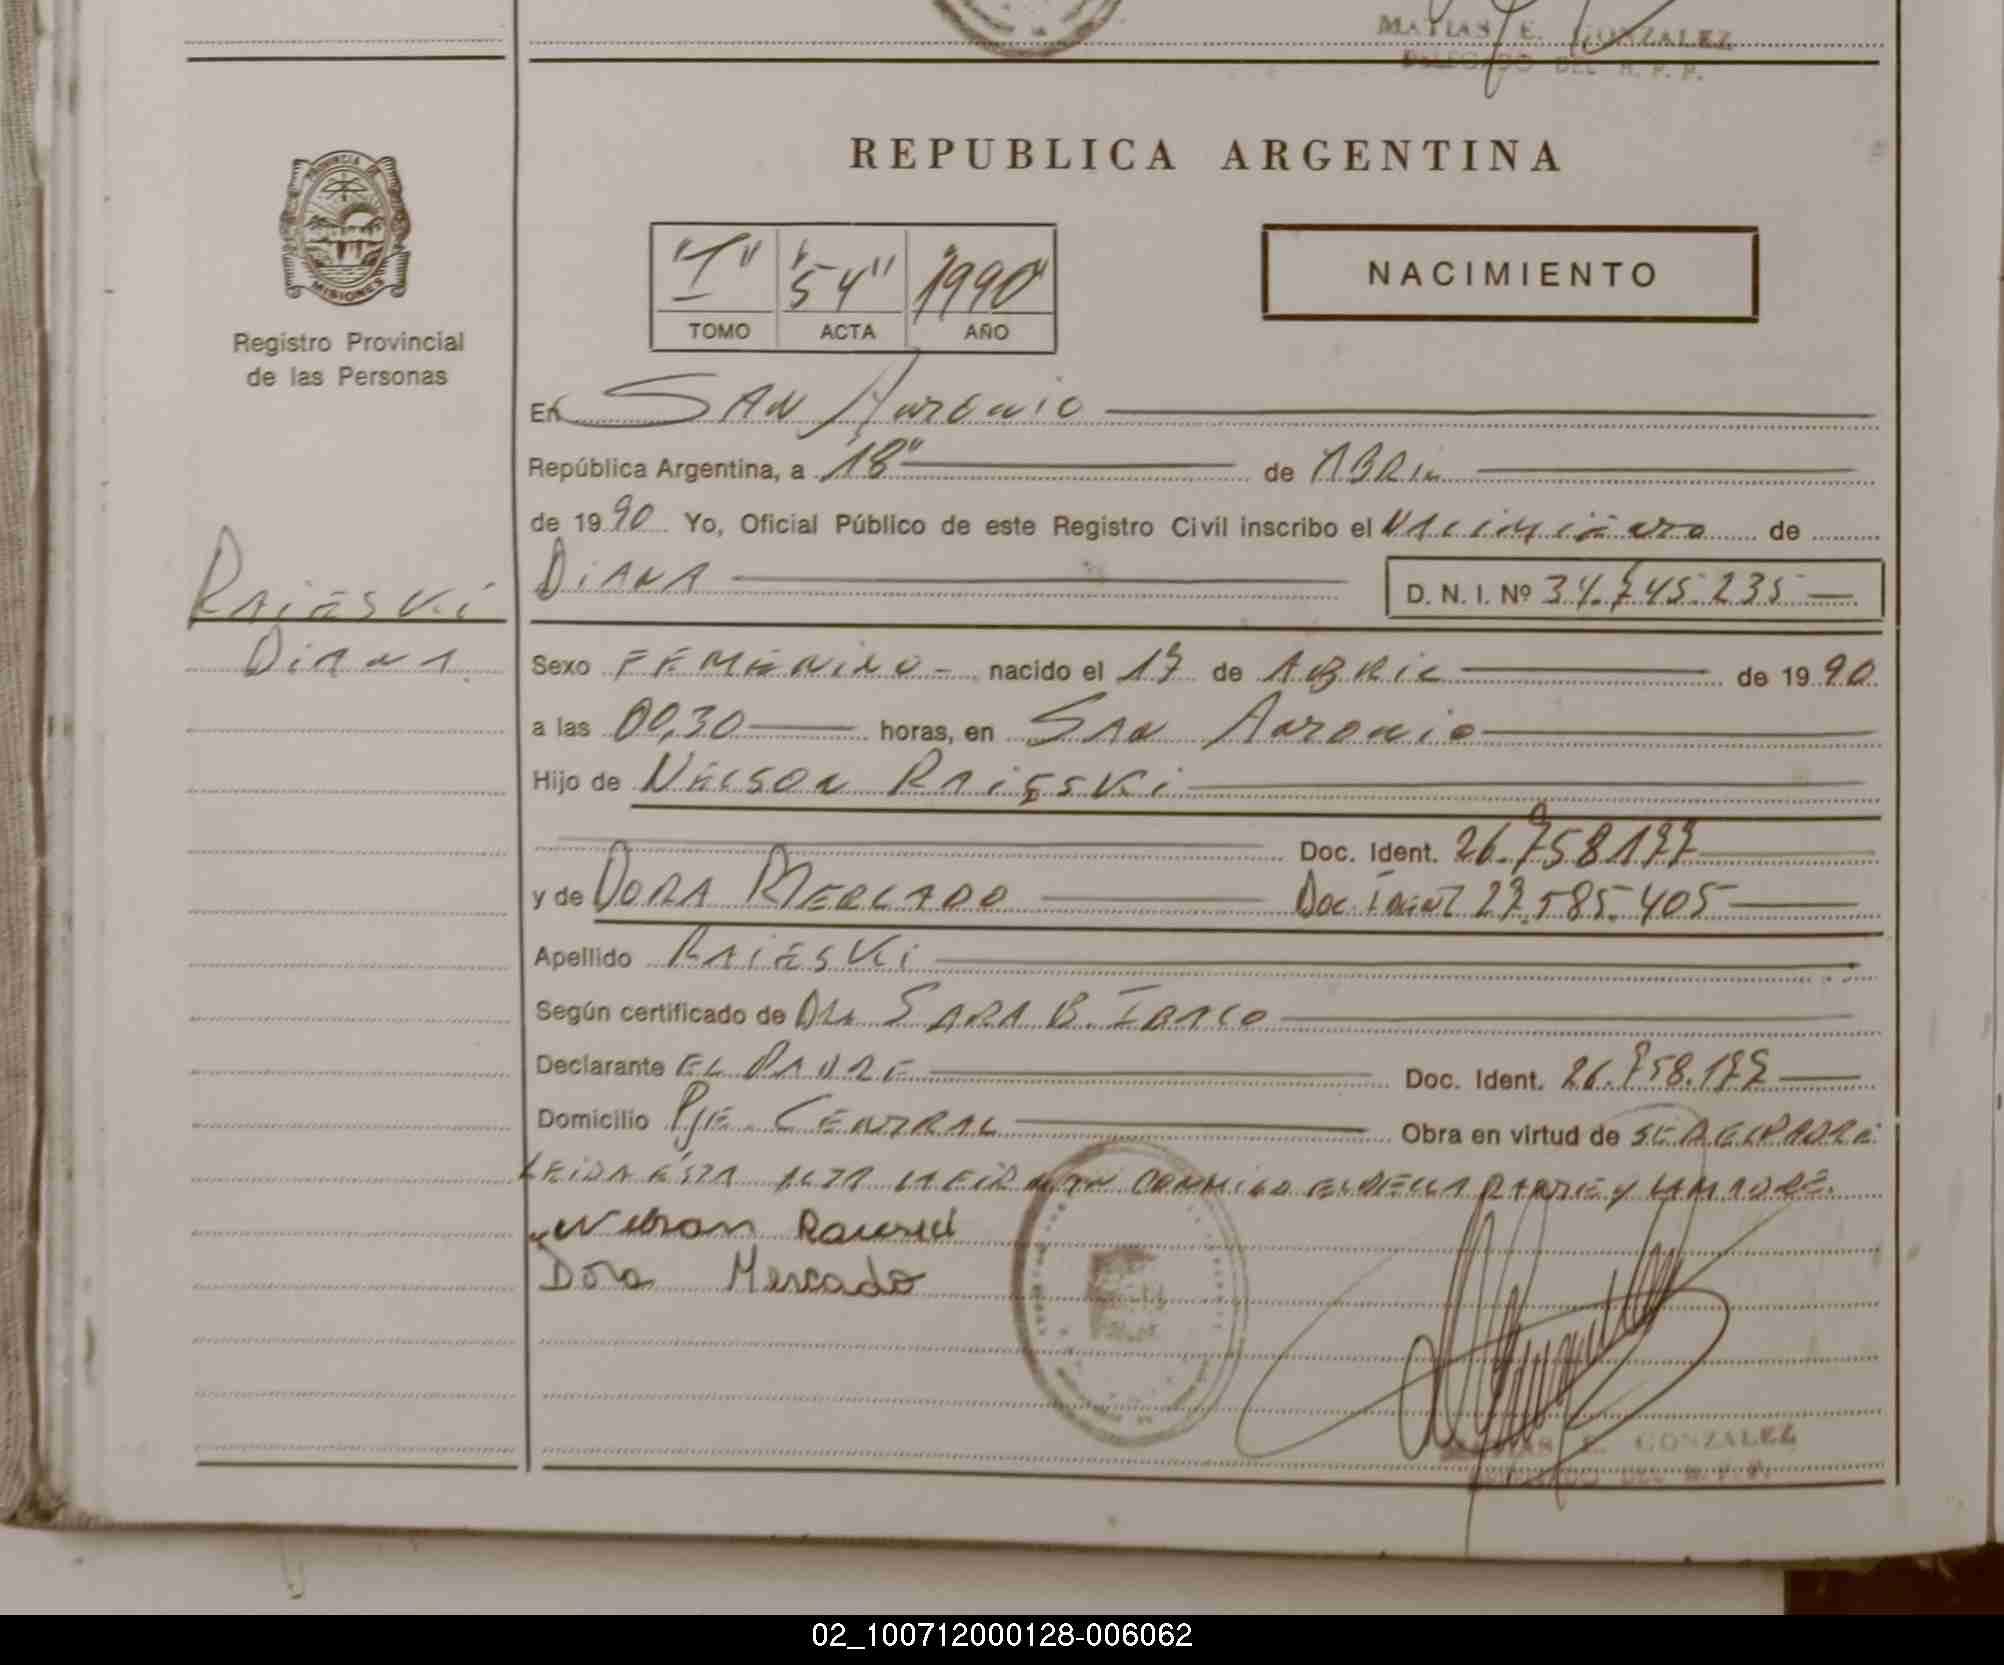 MATIAS E. GONZALEZ
DELEGADO DEL R. P. P.
REPUBLICA ARGENTINA
PROVINCIA DE
MISIONES
Registro Provincial
de las Personas
"I" "54" 1990"
TOMO ACTA AÑO
NACIMIENTO
En SAN ANTONIO
República Argentina, a 18" de ABRIL
de 1990 Yo, Oficial Público de este Registro Civil inscribo el NACIMIENTO de
RAIESKI
DIANA
DIANA D. N. I. Nº 34.745.235
Sexo FEMENINO - nacido el 17 de ABRIL de 1990
a las 00,30 horas, en SAN ANTONIO
Hijo de NELSON RAIESKI
Doc. Ident. 26.758177
y de DORA MERCADO Doc Ident 27.585.405
Apellido RAIESKI
Según certificado de DRA SARA B.
Declarante EL PADRE Doc. Ident. 26.758.177
Domicilio PJE. CENTRAL Obra en virtud de SER EL PADRE
LEIDA ESTA ACTA LA FIRMAN CONMIGO EL DE LA PADRE y LA MADRE.
Nelson Raieski
Dora Mercado
MATIAS E. GONZALEZ
DELEGADO DEL R. P. P.
02_100712000128-006062